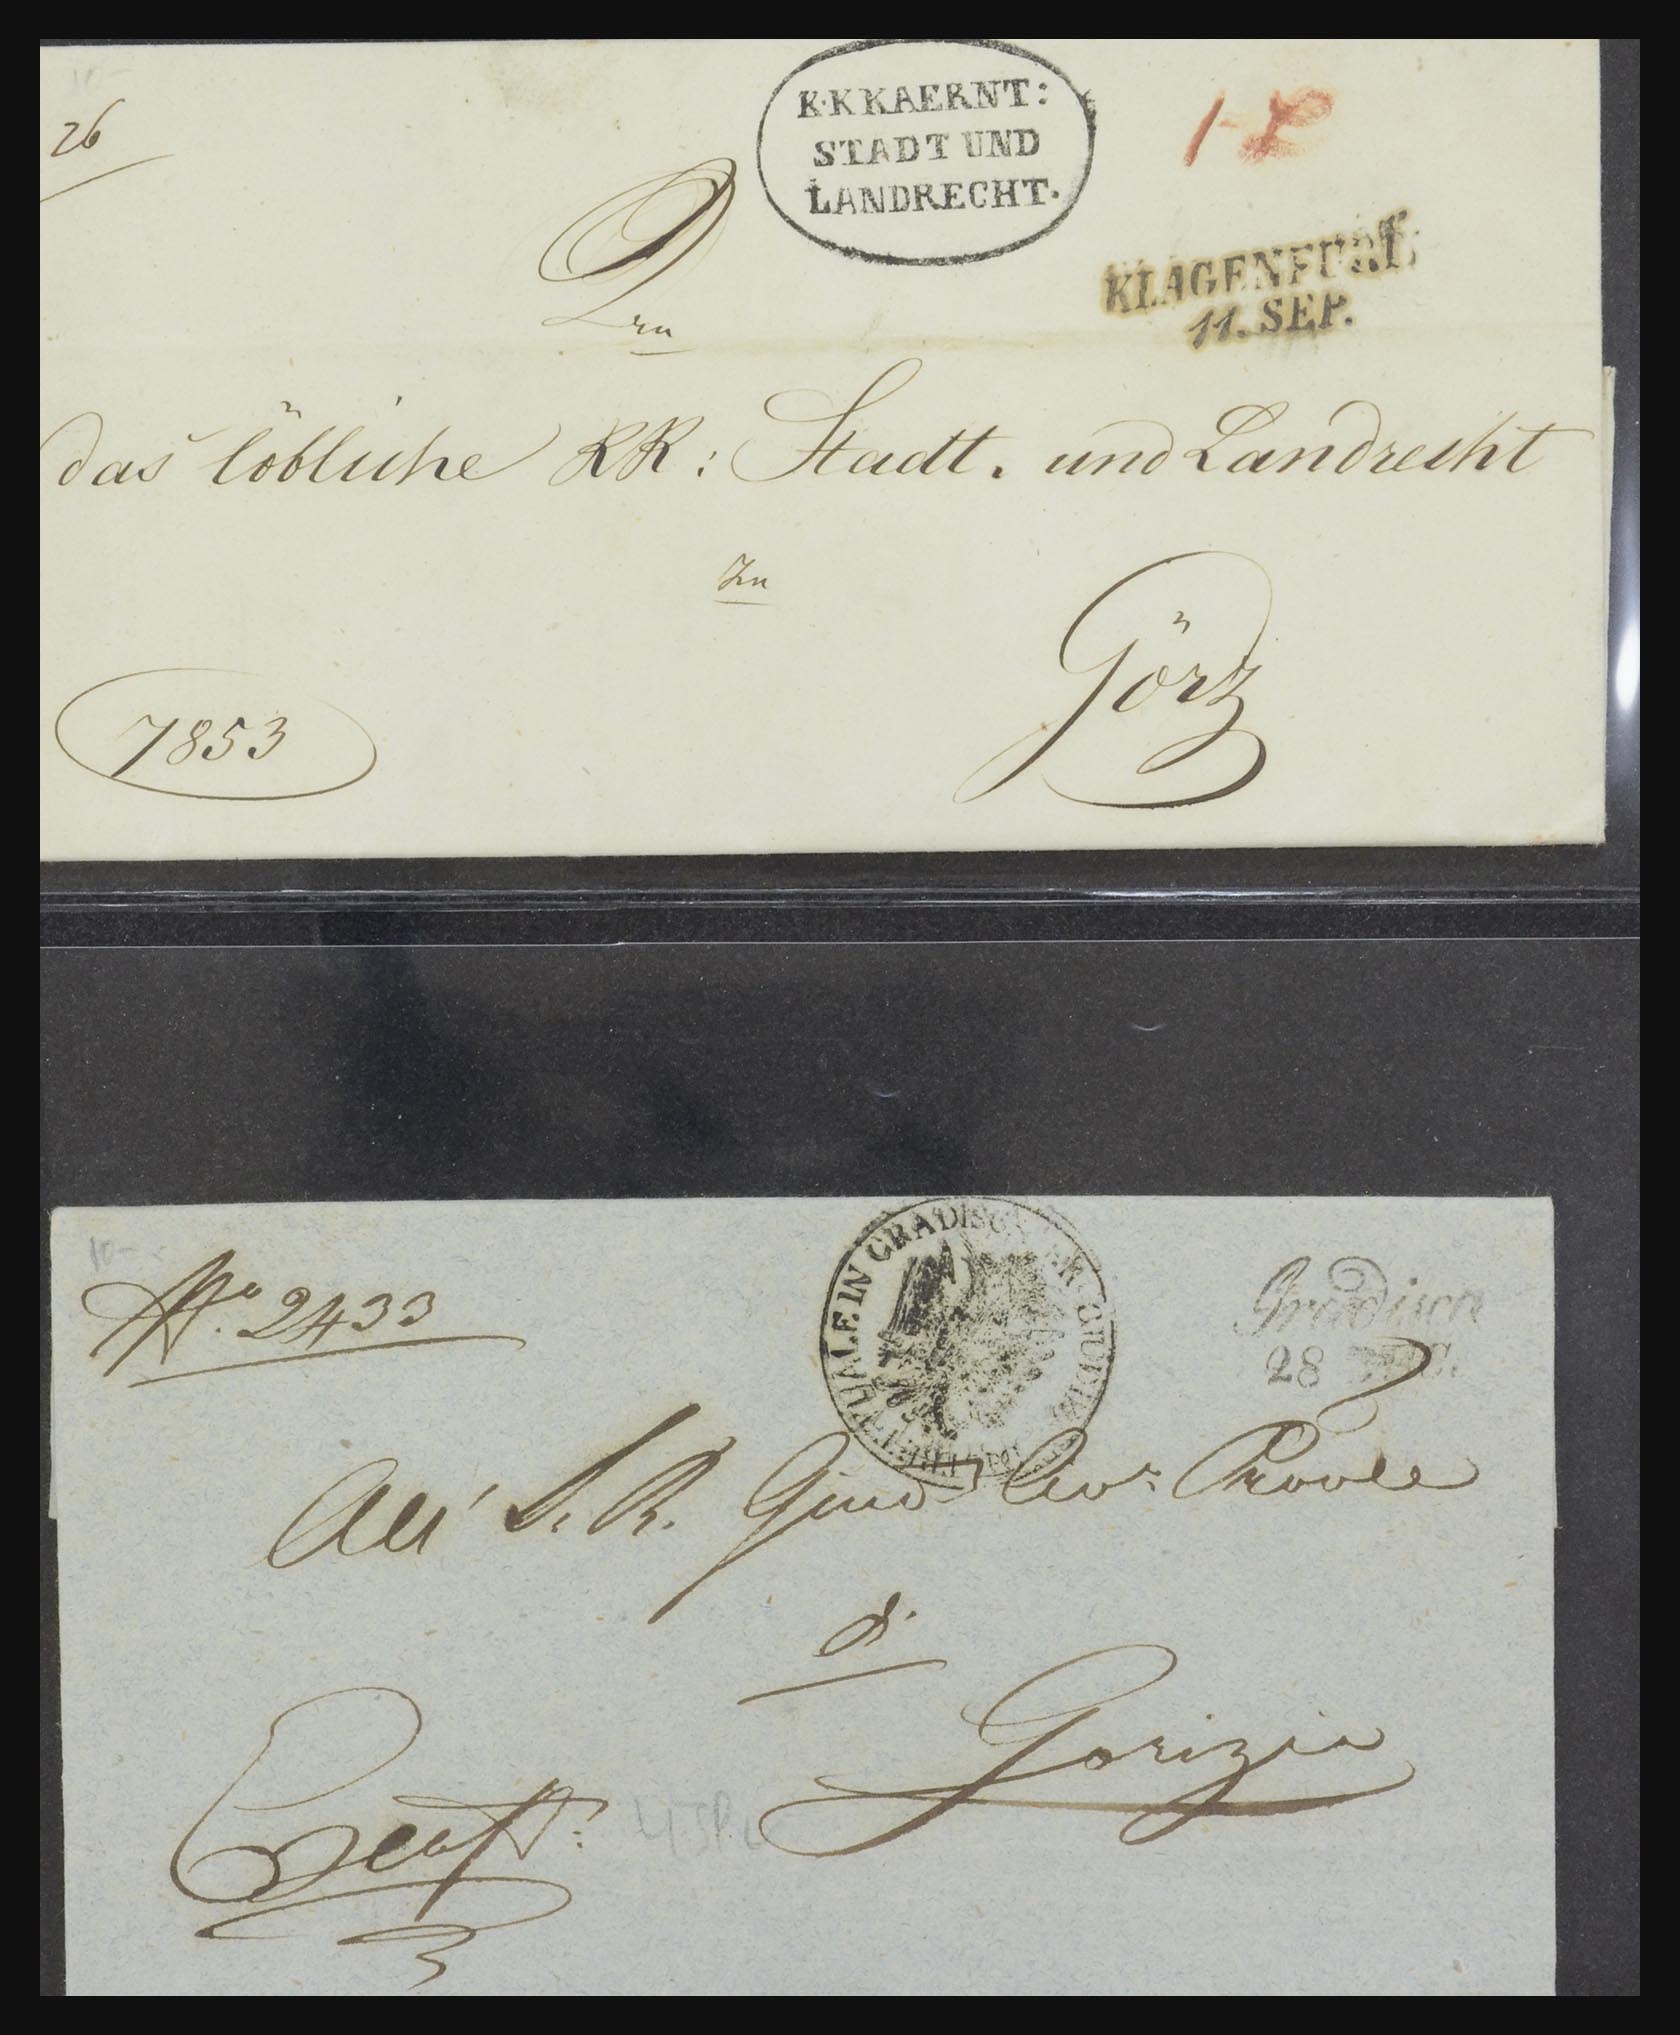 10-
26
K.K KAERNT:
STADT UND
LANDRECHT.
KLAGENFURT,
11. SEP.
das löbliche KK: Stadt. und Landrecht
zu
Görz
7853
10-
No. 2433
IN GRADISC
Gradisca
28
All' I. R. Giud Civ: Prov
di
Gorizia